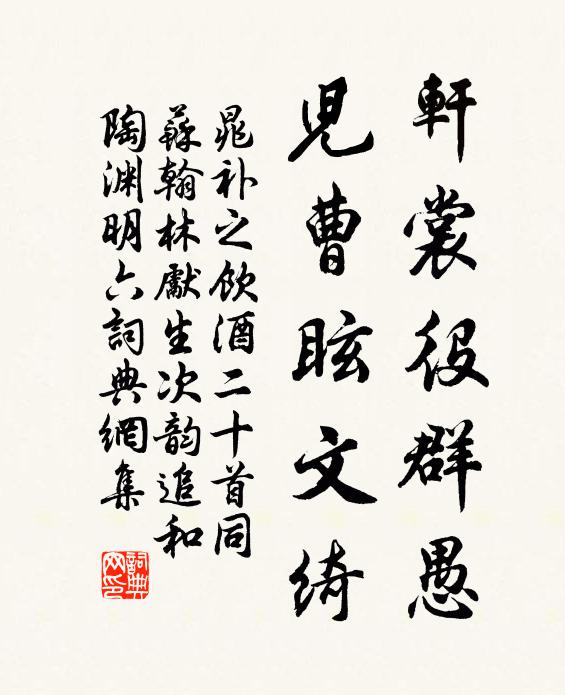 軒裳役群愚
児曹眩文綺
晁补之飲酒二十首同
蘇翰林獻生次韵追和
陶渊明六詞典網集
詞典
网印